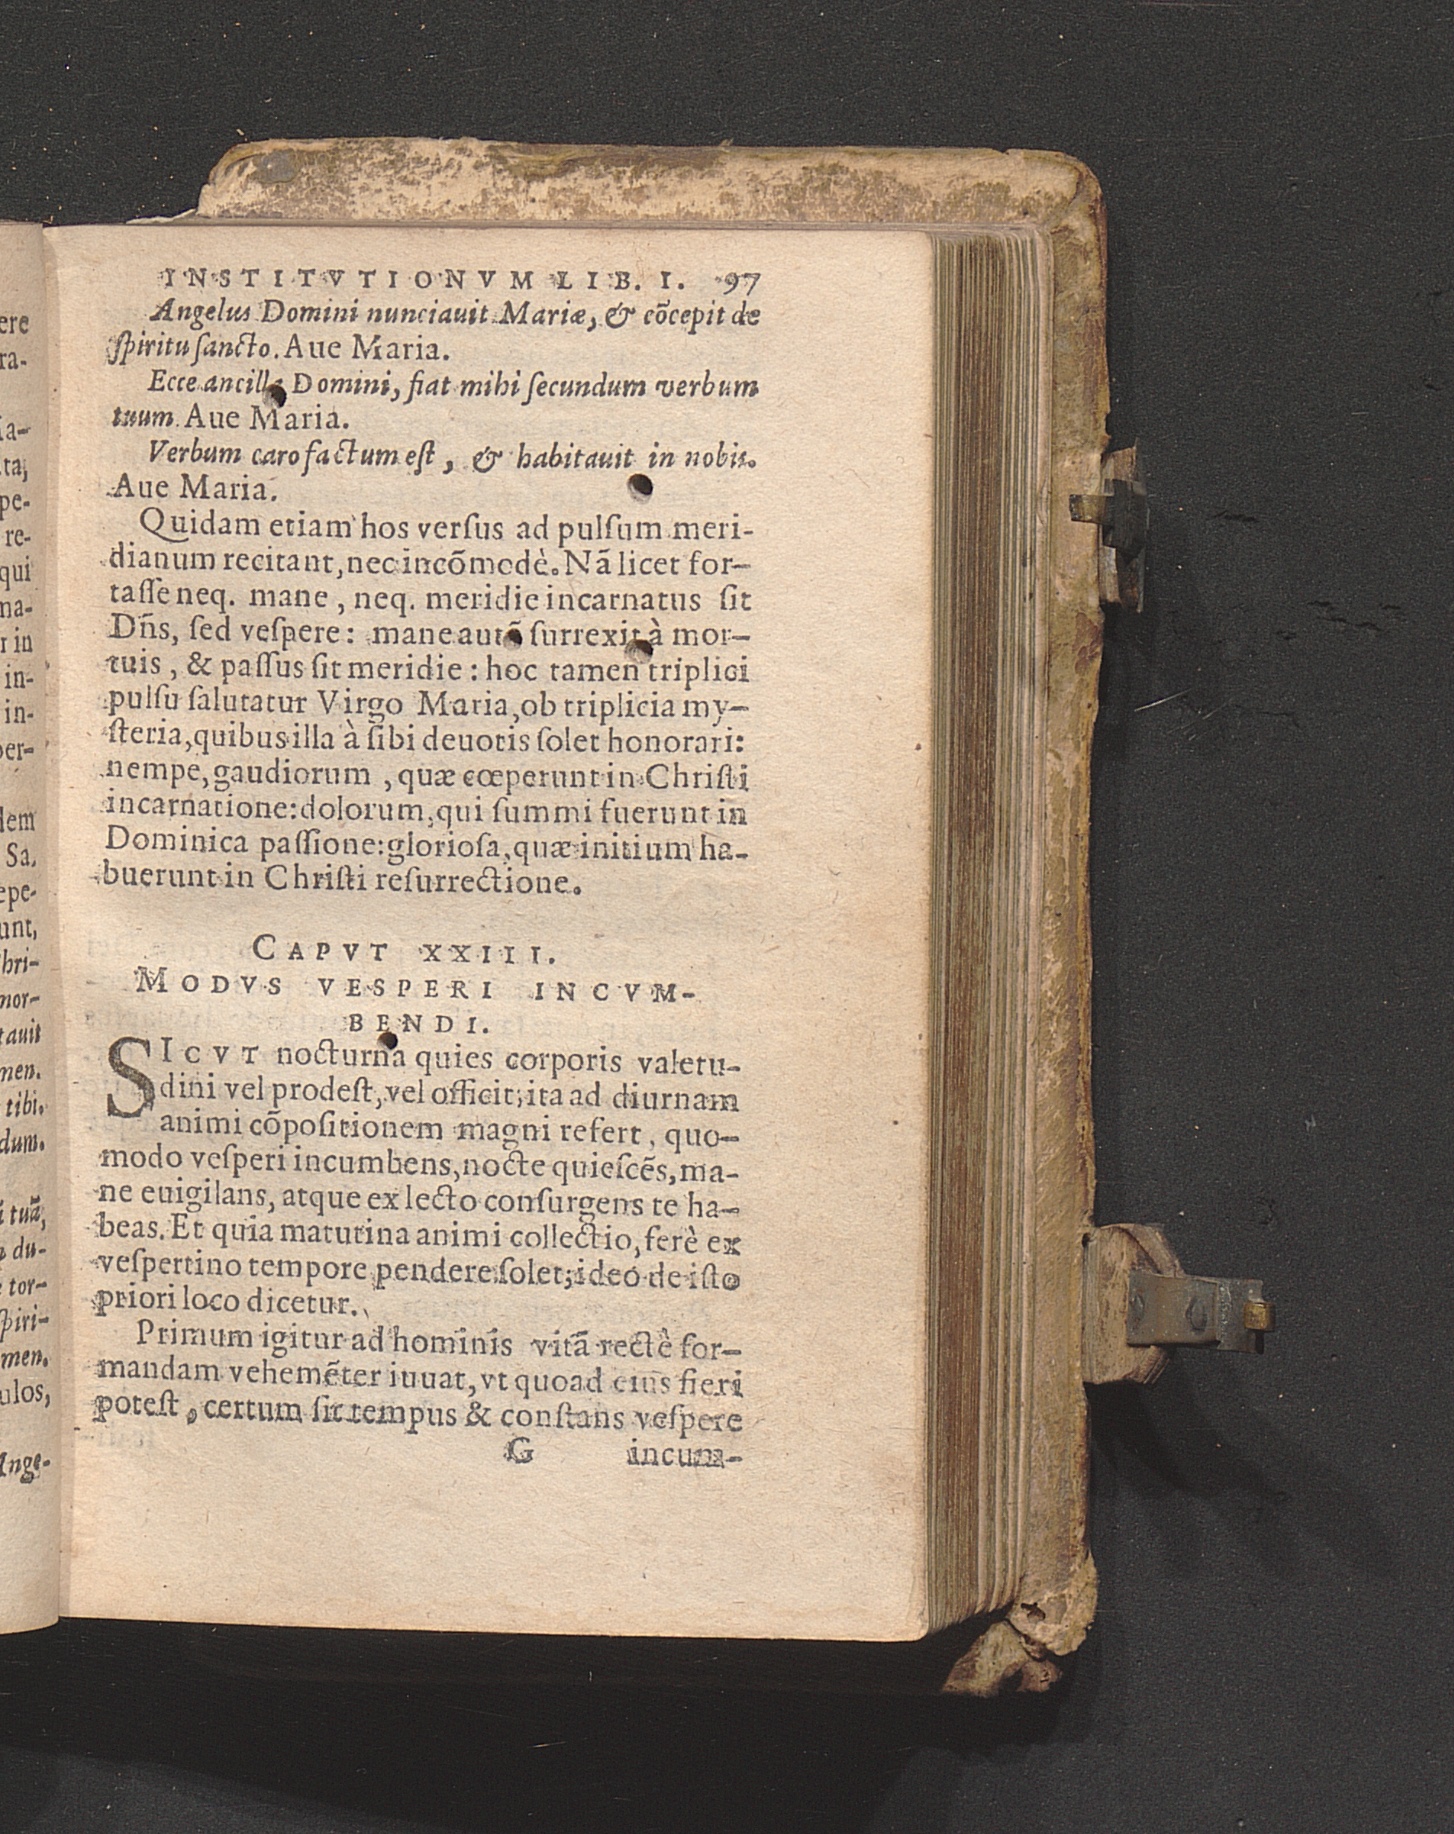 INSTITVTIONVM LIB. I. 97
Angelus Domini nunciauit Mariæ, & cõcepit de
ſpiritu ſancto. Aue Maria.
Ecce ancilla Domini, fiat mihi ſecundum verbum
tuum. Aue Maria.
Verbum caro factum eſt, & habitauit in nobis.
Aue Maria.
Quidam etiam hos verſus ad pulſum meri-
dianum recitant, nec incõmodè. Nã licet for-
taſſe neq. mane, neq. meridie incarnatus ſit
Dñs, ſed veſpere: mane autẽ ſurrexit à mor-
tuis, & paſſus ſit meridie: hoc tamen triplici
pulſu ſalutatur Virgo Maria, ob triplicia my-
ſteria, quibus illa à ſibi deuotis ſolet honorari:
nempe, gaudiorum, quæ cœperunt in Chriſti
incarnatione: dolorum, qui ſummi fuerunt in
Dominica paſſione: glorioſa, quæ initium ha-
buerunt in Chriſti reſurrectione.
CAPVT XXIII.
MODVS VESPERI INCVM-
BENDI.
SICVT nocturna quies corporis valetu-
dini vel prodeſt, vel officit; ita ad diurnam
animi cõpoſitionem magni refert, quo-
modo veſperi incumbens, nocte quieſcẽs, ma-
ne euigilans, atque ex lecto conſurgens te ha-
beas. Et quia matutina animi collectio, ferè ex
veſpertino tempore pendere ſolet; ideo de iſto
priori loco dicetur.
Primum igitur ad hominis vitã rectè for-
mandam vehemẽter iuuat, vt quoad eius fieri
poteſt, certum ſit tempus & conſtans veſpere
G incum-
ere
ra-
ta,
pe-
re-
qui
ma-
in
in-
in-
per-
dem
Sa.
epe-
unt,
hri-
mor-
tauit
men.
tibi.
dum.
tuã,
du-
tor-
ſpiri-
men.
ulos,
Ange-